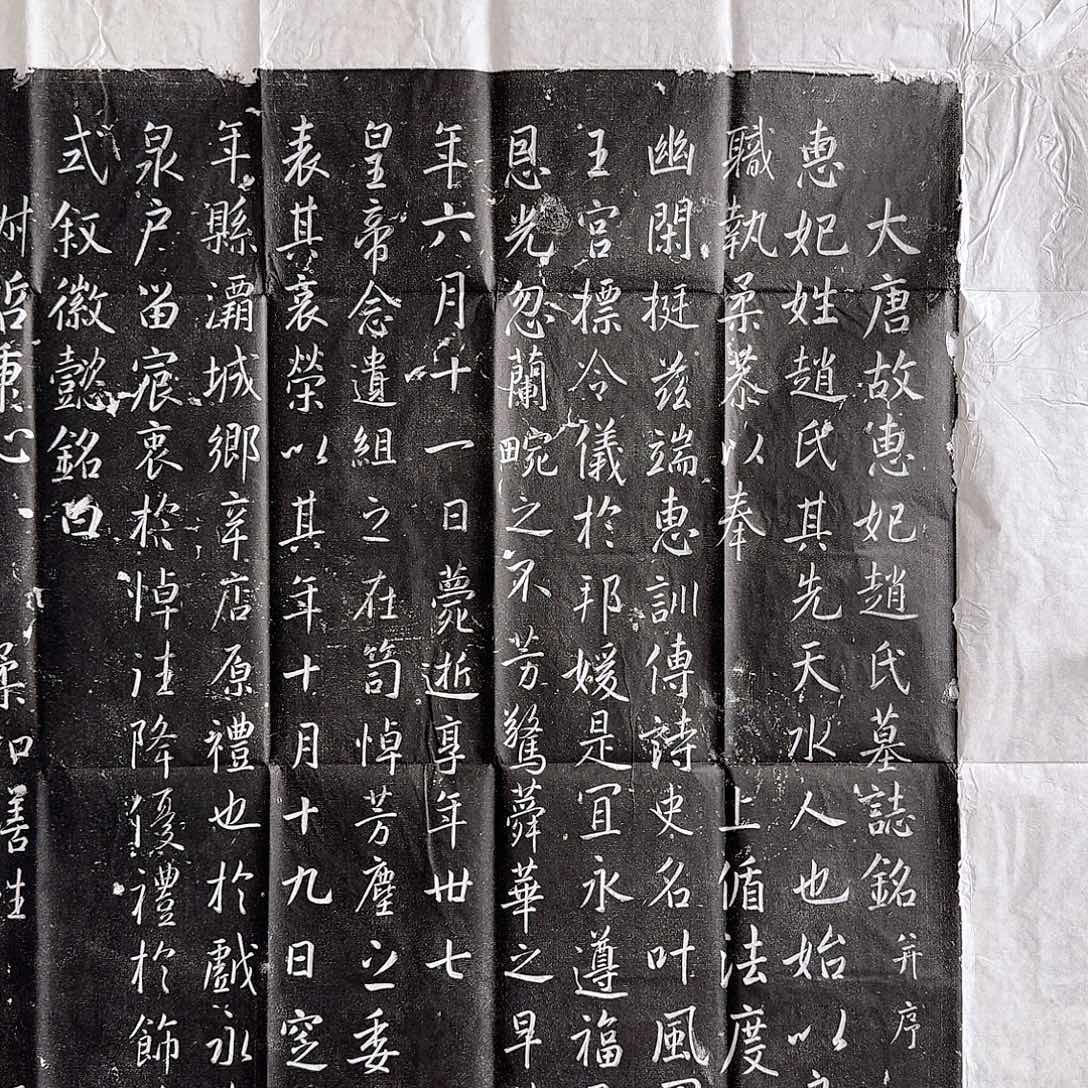 大唐故惠妃趙氏墓誌銘并序
惠妃姓趙氏其先天水人也始以
職執柔恭以奉上循法度
幽閑挺茲端惠訓傳詩史名叶風
王宮標令儀於邦媛是宜永遵福
恩光忽蘭畹之不芳驚蕣華之早
年六月十一日薨逝享年卅七
皇帝念遺組之在笥悼芳塵之委
表其哀榮以其年十月十九日窆
年縣灞城鄉辛店原禮也於戲永
泉戶留扆衷於悼往降優禮於飾
式敘徽懿銘曰
淑哲秉心柔和善性